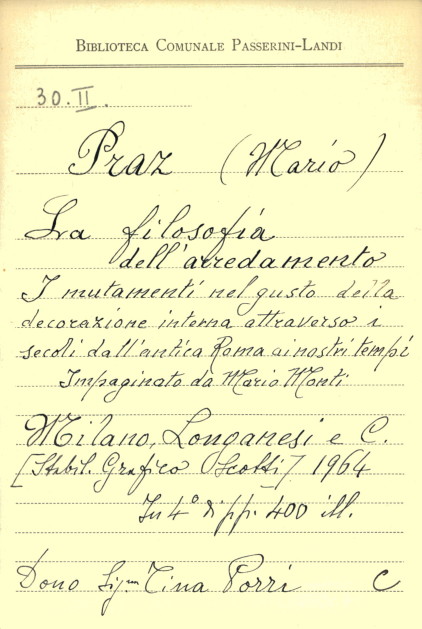 BIBLIOTECA COMUNALE PASSERINI-LANDI
30.II.
Praz (Mario)
La filosofia
dell'arredamento
I mutamenti nel gusto della
decorazione interna attraverso i
secoli dall'antica Roma ai nostri tempi
Impaginato da Mario Monti
Milano, Longanesi e C.
[Stabil. Grafico Scotti] 1964
In 4° di pp. 400 ill.
Dono Sig.na Tina Porri C